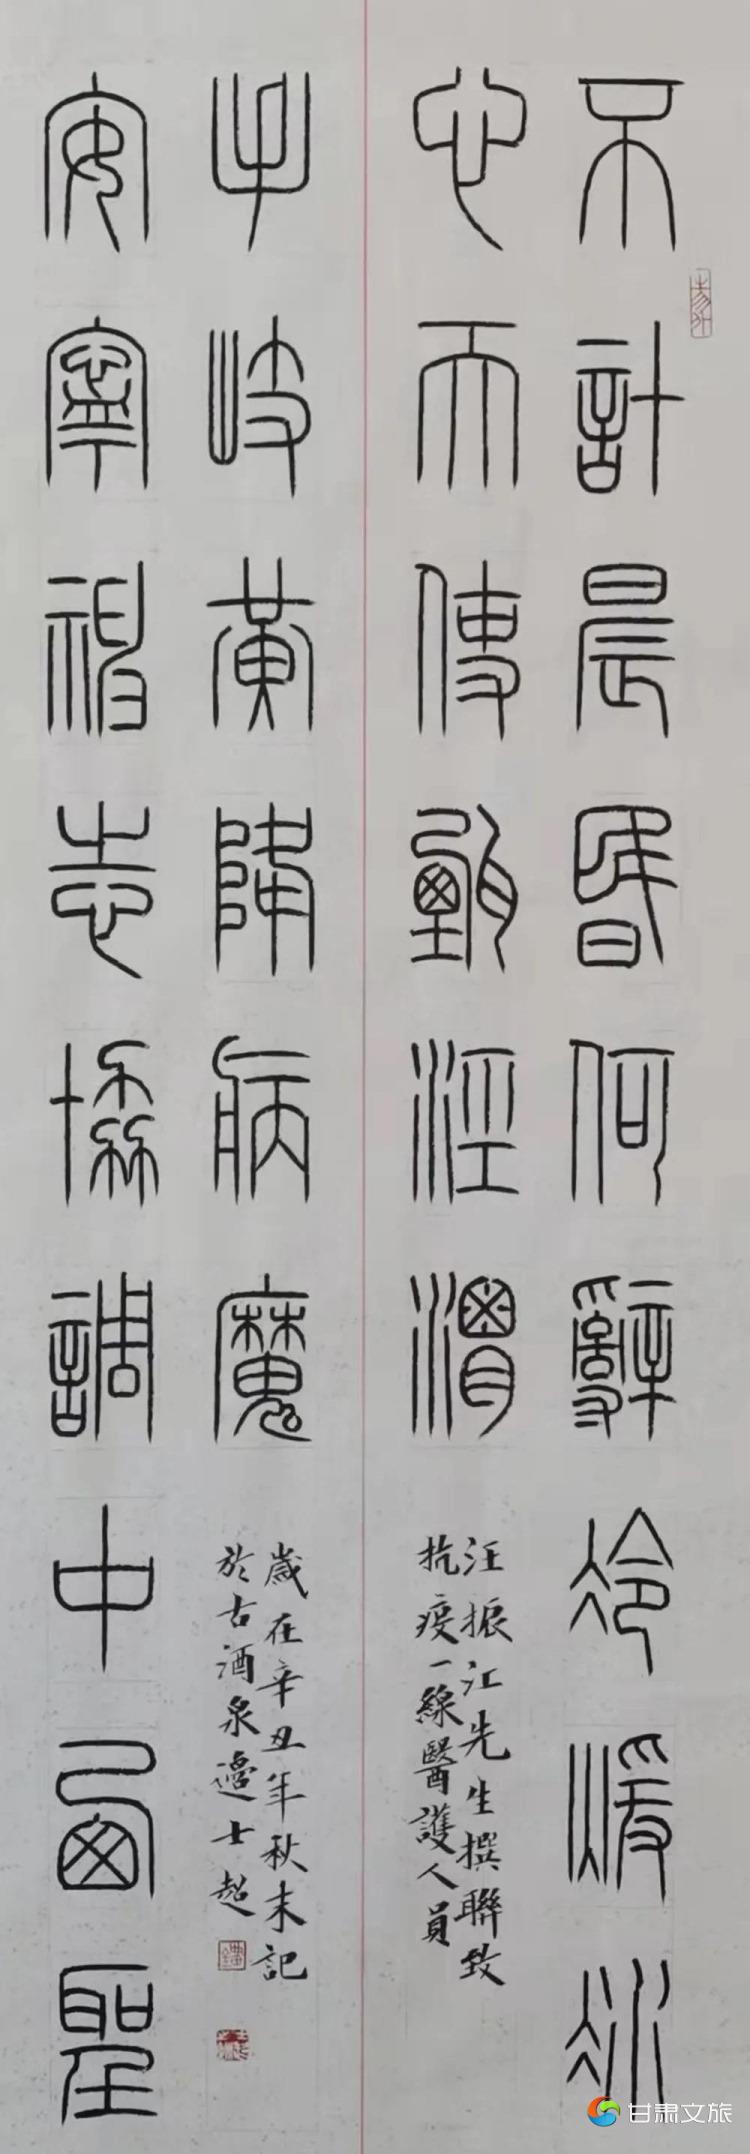 不計晨昏何辭冷暖冰
心而使甄涇渭
汪振江先生撰聯致
抗疫一線醫護人員
安寧神志協調中西聖
手岐黃降病魔
歲在辛丑年秋末記
於古酒泉邊士超
甘肃文旅